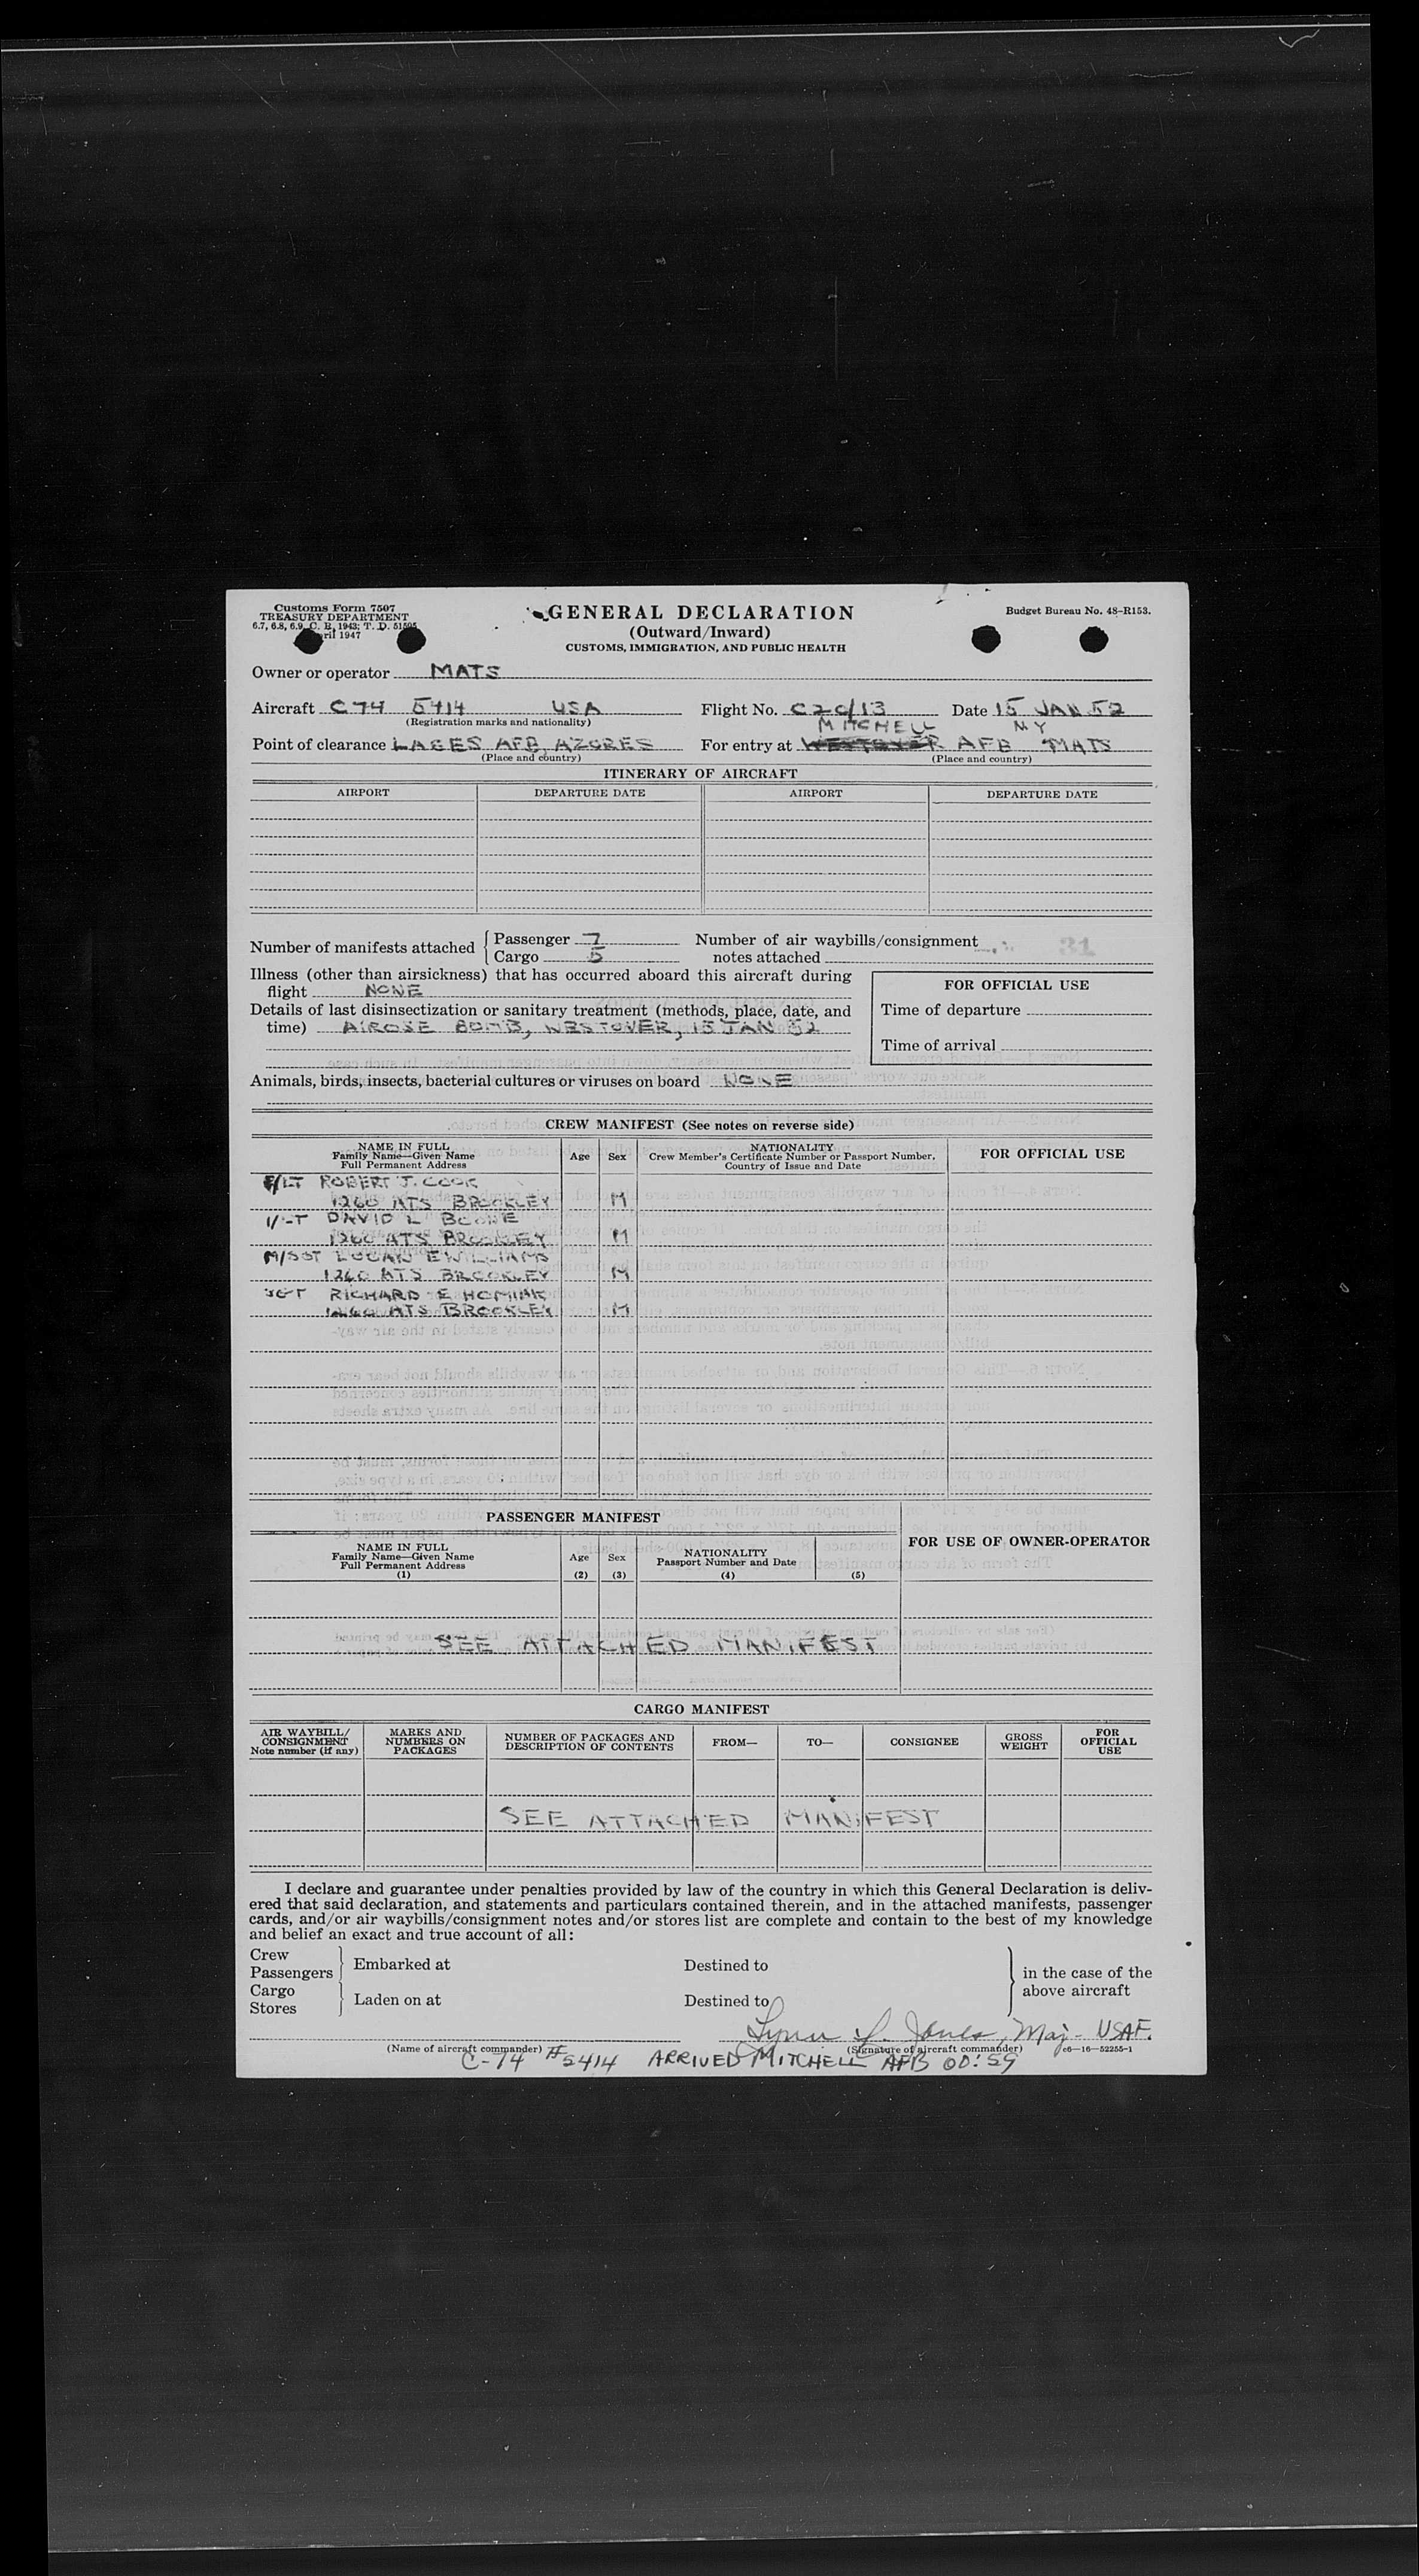 Customs Form 7507
TREASURY DEPARTMENT
6.7, 6.8, 6.9, C. R. 1943; T. D. 51595
ril 1947
GENERAL DECLARATION
(Outward/Inward)
CUSTOMS, IMMIGRATION, AND PUBLIC HEALTH
Budget Bureau No. 48-R153.
Owner or operator MATS
Aircraft C74 5414 USA Flight No. C2C/13 Date 15 JAN 52
(Registration marks and nationality)
MITCHELL NY
Point of clearance LAGES AFB, AZORES For entry at WESTOVER AFB MATS
(Place and country) (Place and country)
ITINERARY OF AIRCRAFT
AIRPORT DEPARTURE DATE AIRPORT DEPARTURE DATE
Number of manifests attached Passenger 7 Number of air waybills/consignment 31
Cargo 5 notes attached
Illness (other than airsickness) that has occurred aboard this aircraft during
flight NONE
FOR OFFICIAL USE
Details of last disinsectization or sanitary treatment (methods, place, date, and
time) AIROSE BOMB, WESTOVER, 15 JAN 52
Time of departure
Time of arrival
Animals, birds, insects, bacterial cultures or viruses on board NONE
CREW MANIFEST (See notes on reverse side)
NAME IN FULL
Family Name—Given Name
Full Permanent Address
Age Sex
NATIONALITY
Crew Member's Certificate Number or Passport Number,
Country of Issue and Date
FOR OFFICIAL USE
LT ROBERT J. COOK
1260 ATS BROOKLEY M
1/LT DAVID L BOONE
1260 ATS BROOKLEY M
M/SGT LOGAN E WILLIAMS
1260 ATS BROOKLEY M
SGT RICHARD E HOMIAK
1260 ATS BROOKLEY M
PASSENGER MANIFEST
NAME IN FULL
Family Name—Given Name
Full Permanent Address
(1)
Age
(2)
Sex
(3)
NATIONALITY
Passport Number and Date
(4) (5)
FOR USE OF OWNER-OPERATOR
SEE ATTACHED MANIFEST
CARGO MANIFEST
AIR WAYBILL/
CONSIGNMENT
Note number (if any)
MARKS AND
NUMBERS ON
PACKAGES
NUMBER OF PACKAGES AND
DESCRIPTION OF CONTENTS
FROM— TO— CONSIGNEE
GROSS
WEIGHT
FOR
OFFICIAL
USE
SEE ATTACHED MANIFEST
I declare and guarantee under penalties provided by law of the country in which this General Declaration is deliv-
ered that said declaration, and statements and particulars contained therein, and in the attached manifests, passenger
cards, and/or air waybills/consignment notes and/or stores list are complete and contain to the best of my knowledge
and belief an exact and true account of all:
Crew
Passengers
Embarked at Destined to
Cargo
Stores
Laden on at Destined to
in the case of the
above aircraft
Lynn L. Jones, Maj- USAF.
(Name of aircraft commander) (Signature of aircraft commander) c6—16—52255-1
C-74 #5414 ARRIVED MITCHELL AFB 00:59